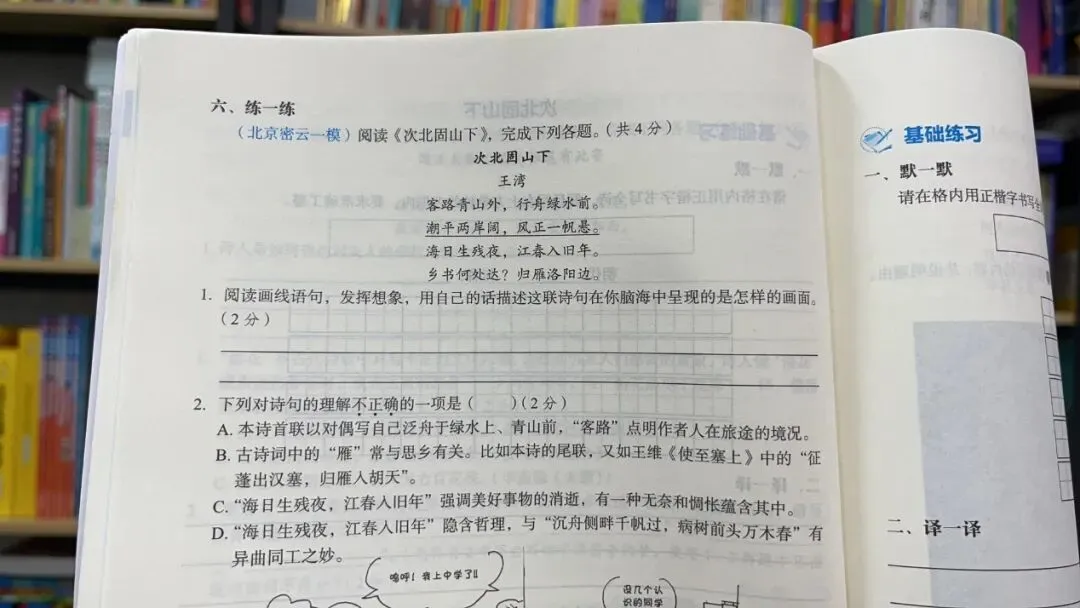 六、练一练
（北京密云一模）阅读《次北固山下》，完成下列各题。（共4分）
次北固山下
王湾
客路青山外，行舟绿水前。
潮平两岸阔，风正一帆悬。
海日生残夜，江春入旧年。
乡书何处达？归雁洛阳边。
1. 阅读画线语句，发挥想象，用自己的话描述这联诗句在你脑海中呈现的是怎样的画面。
（2分）
2. 下列对诗句的理解不正确的一项是（　　）（2分）
A. 本诗首联以对偶写自己泛舟于绿水上、青山前，“客路”点明作者人在旅途的境况。
B. 古诗词中的“雁”常与思乡有关。比如本诗的尾联，又如王维《使至塞上》中的“征
蓬出汉塞，归雁入胡天”。
C. “海日生残夜，江春入旧年”强调美好事物的消逝，有一种无奈和惆怅蕴含其中。
D. “海日生残夜，江春入旧年”隐含哲理，与“沉舟侧畔千帆过，病树前头万木春”有
异曲同工之妙。
呜呼！我上中学了!!
没几个认
识的同学
基础练习
一、默一默
请在格内用正楷字书写全
二、译一译